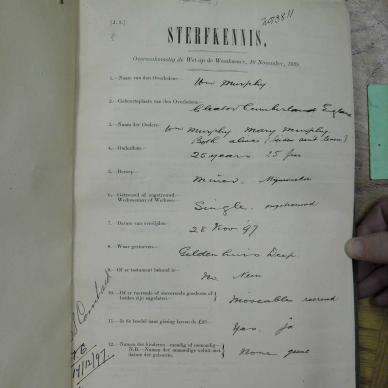 [J. 2.]
STERFKENNIS,
Overeenkomstig de Wet op de Weeskamer, 18 November, 1869.
1.—Naam van den Overledene— Wm Murphy
2.—Geboorteplaats van den Overledene— Cleator Cumberland England
3.—Namen der Ouders— Wm Murphy Mary Murphy
Both alive
4.—Ouderdom— 25 years 25 jaar
5.—Beroep— Miner. Mynwerker
6.—Getrouwd of ongetrouwd—
Weduwenaar of Weduwe— Single. ongetrouwd
7.—Datum van overlijden— 28 Nov 97
8.—Waar gestorven— Geldenhuis Deep
9.—Of er testament bekend is— No. Neen
10.—Of er roerende of onroerende goederen of
beiden zijn nagelaten— Moveables roerend
11.—Is de boedel naar gissing boven de £20— Yes. ja
12.—Namen der kinderen—mondig of onmondig—
N.B.—Namen der onmondige vooral met
datum der geboorte. None geene
17/12/97